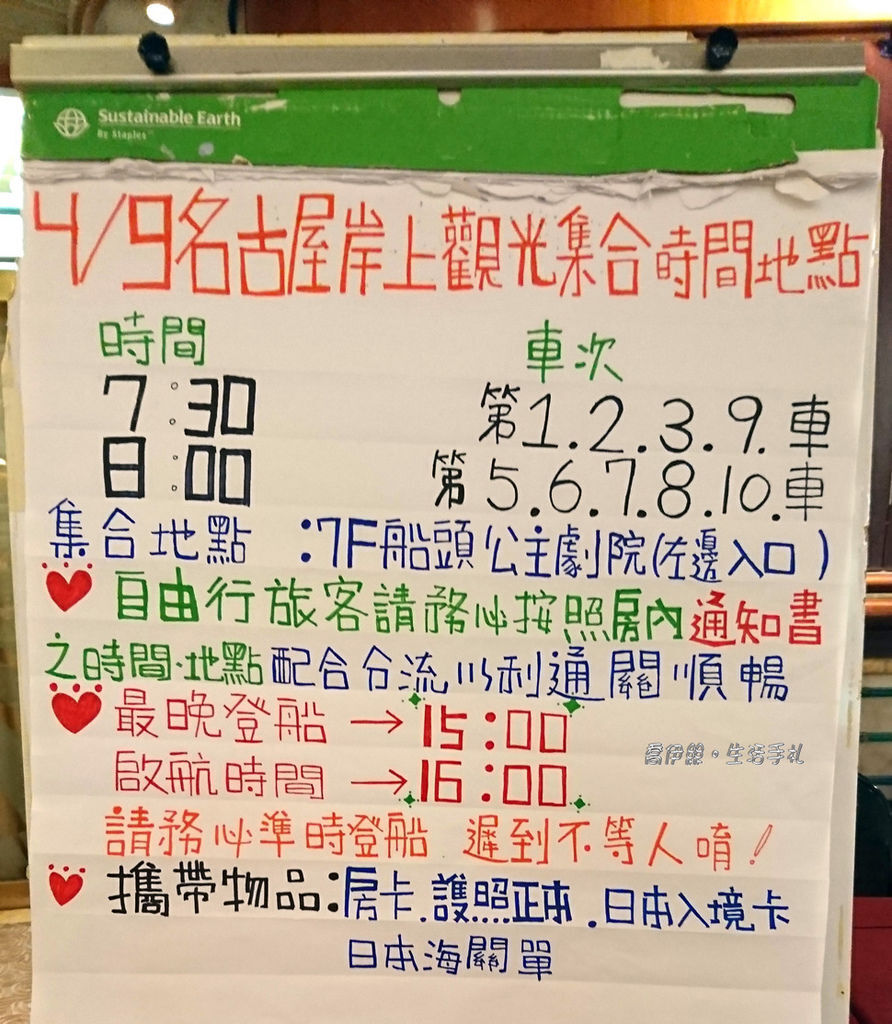 Sustainable Earth
By Staples™
4/9名古屋岸上觀光集合時間地點
時間 車次
7:30 第1.2.3.9.車
8:00 第5.6.7.8.10.車
集合地點 :7F船頭公主劇院(左邊入口)
自由行旅客請務必按照房內通知書
之時間.地點配合分流以利通關順暢
最晚登船→15:00
啟航時間→16:00
請務必準時登船 遲到不等人唷!
攜帶物品:房卡.護照正本.日本入境卡
日本海關單
喬伊絲。生活手札